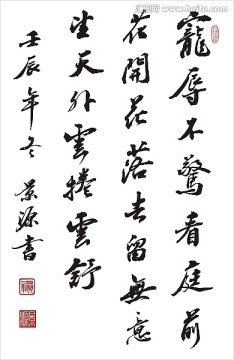 寵辱不驚看庭前
花開花落去留無意
望天外雲捲雲舒
壬辰年冬景源書